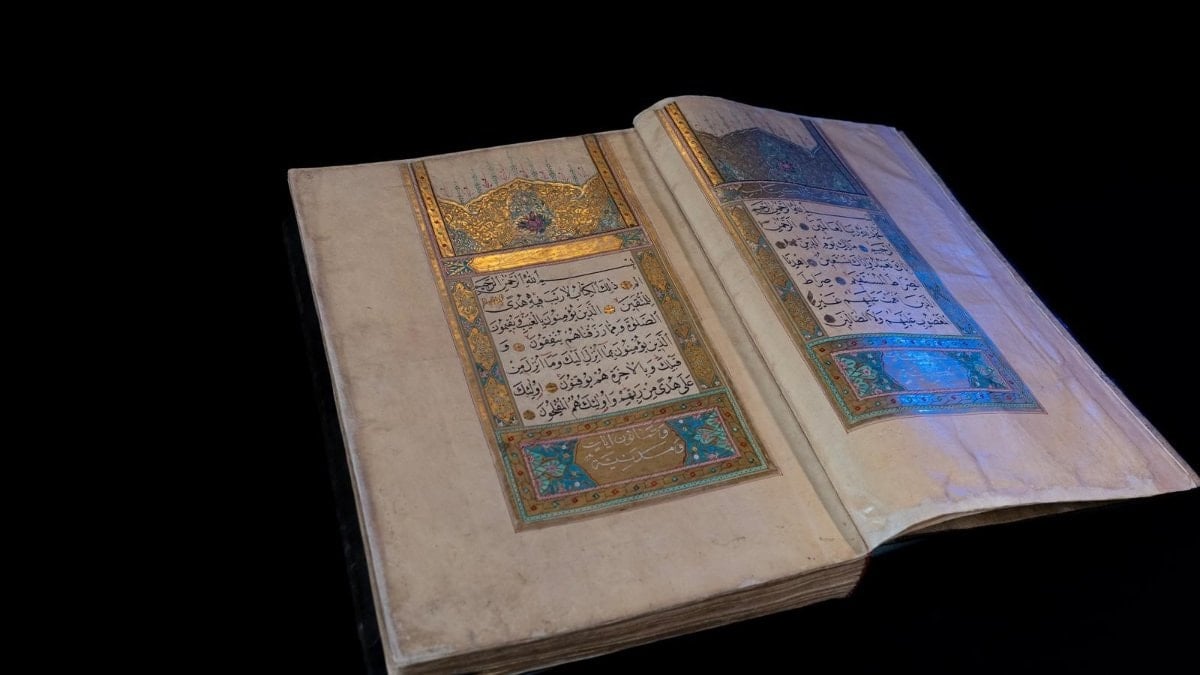 بسم الله الرحمن الرحيم
الحمد لله رب العالمين الرحمن
الرحيم مالك يوم الدين
اياك نعبد واياك نستعين اهدنا
الصراط المستقيم صراط
الذين انعمت عليهم غير
المغضوب عليهم ولا الضالين
بسم الله الرحمن الرحيم
الم ذلك الكتاب لا ريب فيه هدى
للمتقين الذين يؤمنون بالغيب ويقيمون
الصلوة ومما رزقناهم ينفقون و
الذين يؤمنون بما انزل اليك وما انزل من
قبلك وبالاخرة هم يوقنون اولئك
على هدى من ربهم واولئك هم المفلحون
وثمانون ايات
مدنية